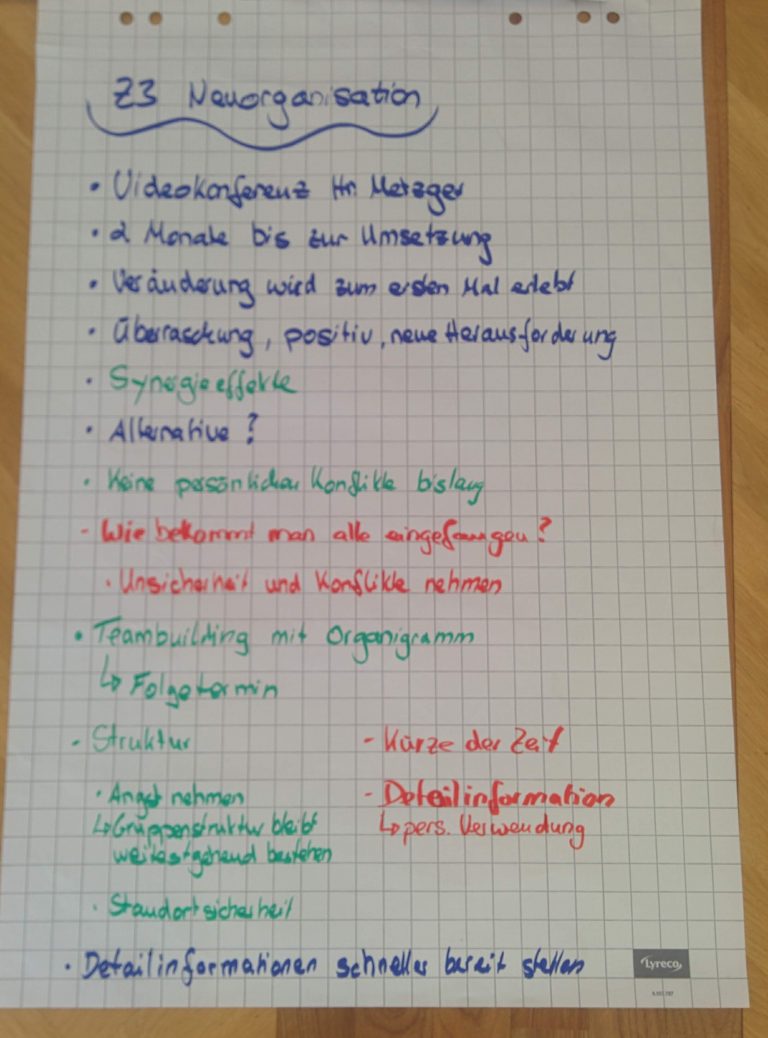 Z3 Neuorganisation
• Videokonferenz Hr. Metzger
• 2 Monate bis zur Umsetzung
• Veränderung wird zum ersten Mal erlebt
• Überraschung, positiv, neue Herausforderung
• Synergieeffekte
• Alternative?
• Keine persönlichen Konflikte bislang
- Wie bekommt man alle eingefangen?
• Unsicherheit und Konflikte nehmen
• Teambuilding mit Organigramm
↳ Folgetermin
- Struktur
• Angst nehmen
↳ Gruppenstruktur bleibt
weitestgehend bestehen
• Standortsicherheit
- Kürze der Zeit
- Detailinformation
↳ pers. Verwendung
• Detailinformationen schneller bereit stellen
Lyreco